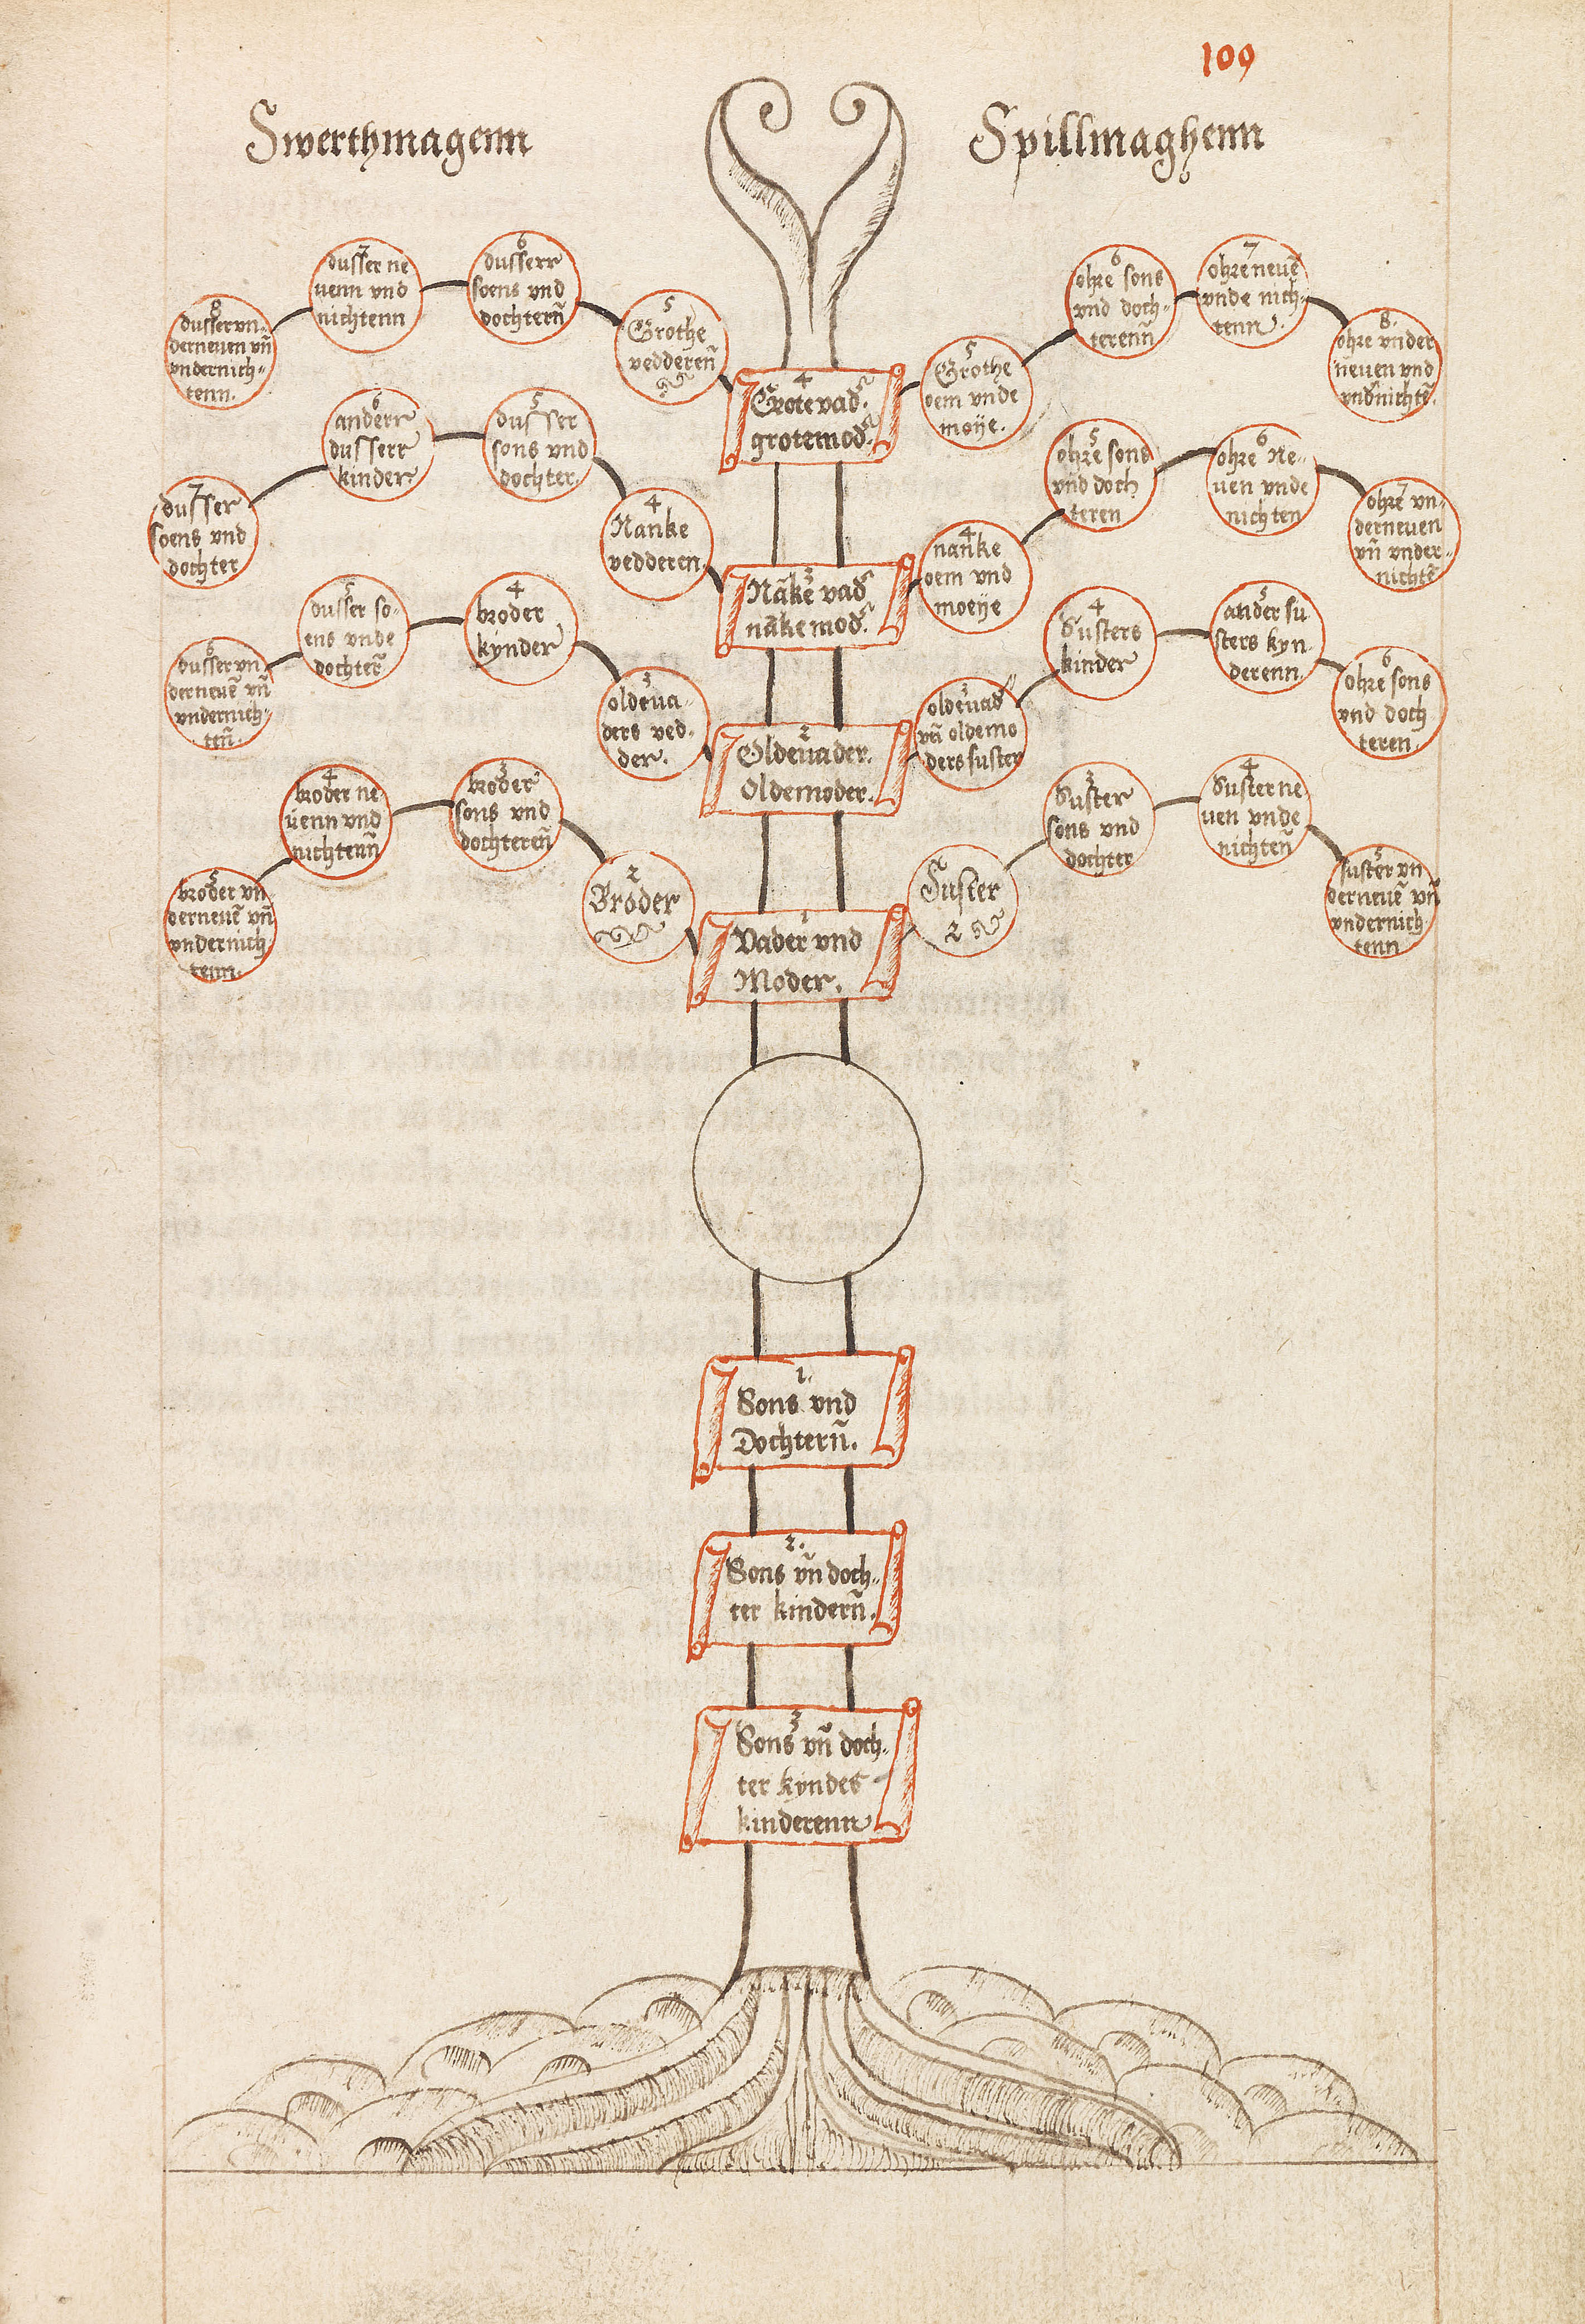 109
Swerthmagenn
Spillmaghenn
8
dusser vn-
derneuen vn̄
vndernich-
tenn.
7
dusser ne
uenn vnd
nichtenn
6
dusserr
soens vnd
dochtern̄
5
Grothe
vedderen̄
4
Grote vad.
grotemod.
5
Grothe
oem vnde
moÿe.
6
ohre sons
vnd doch-
terenn̄
7
ohre neuē
vnde nich-
tenn.
8.
ohre vnder
neuen vnd
vnd nichtē.
7
dusser
soens vnd
dochter
6
anderr
dusserr
kinder
5
dusser
sons vnd
dochter.
4
Nanke
vedderen.
3
Nāke vad
nāke mod.
4
nanke
oem vnd
moeÿe
5
ohrē sons
vnd doch
teren
6
ohre Ne-
uen vnde
nichten
7
ohre vn-
derneuen
vn̄ vnder-
nichtē
6
dusser vn
derneuē vn̄
vndernich-
ten̄.
5
dusser so-
ens vnde
dochter
4
broder
kÿnder
3
oldeua-
ders ved-
der.
2
Oldeuader.
Oldemoder.
3
oldeuad
vn̄ oldemo
ders suster
4
Susters
kinder
5
ander su
sters kyn-
derenn.
6
ohre sons
vnd doch
teren.
5
broder vn
derneuē vn̄
vndernich
tenn.
4
broder ne
uenn vnd
nichtenn̄
3
broder
sons vnd
dochteren̄
2
Broder
1
Vader vnd
Moder.
Suster
2
3
Suster
sons vnd
dochter
4
Suster ne
uen vnde
nichten̄
5
suster vn
derneuē vn̄
vndernich
tenn
1.
Sons vnd
Dochtern̄.
2.
Sons vn̄ doch-
ter kindern̄.
3
Sons vn̄ doch-
ter kyndes
kinderenn